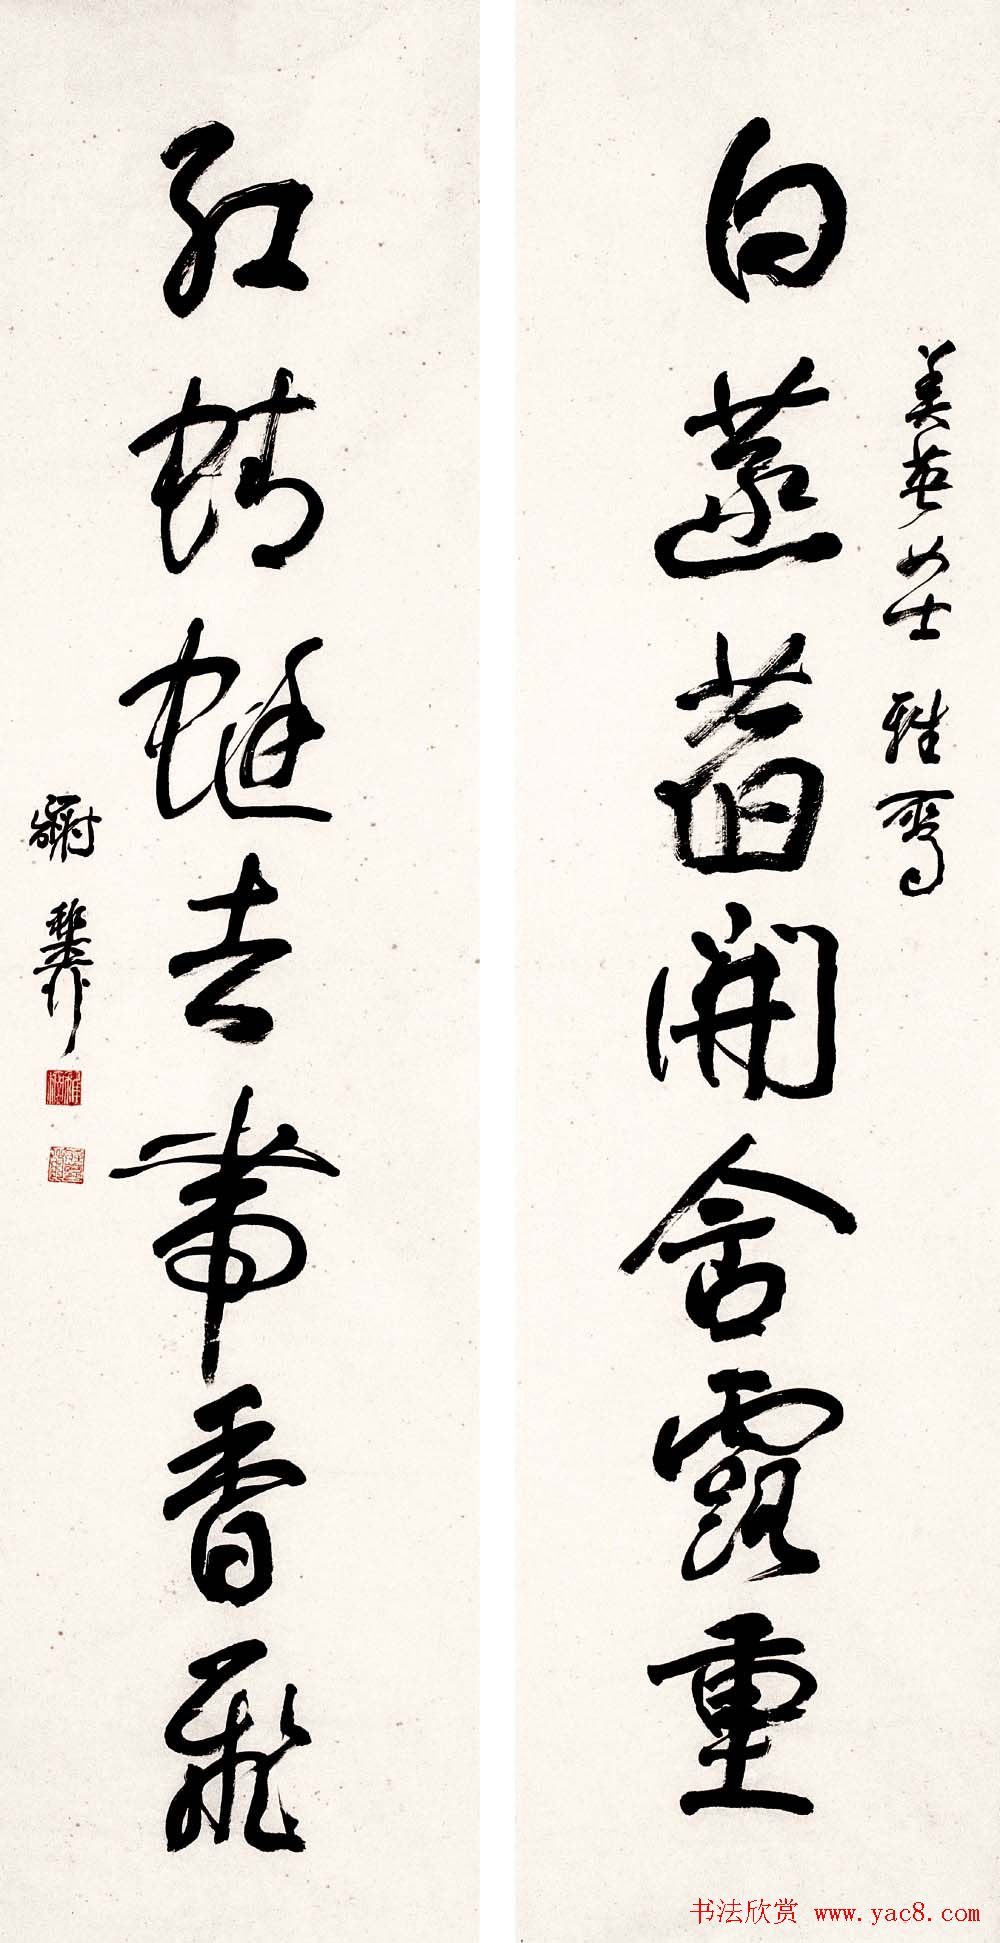 美英女士雅
白菡萏開含露重
紅蜻蜓去帶香飛
謝稚柳
书法欣赏 www.yac8.com